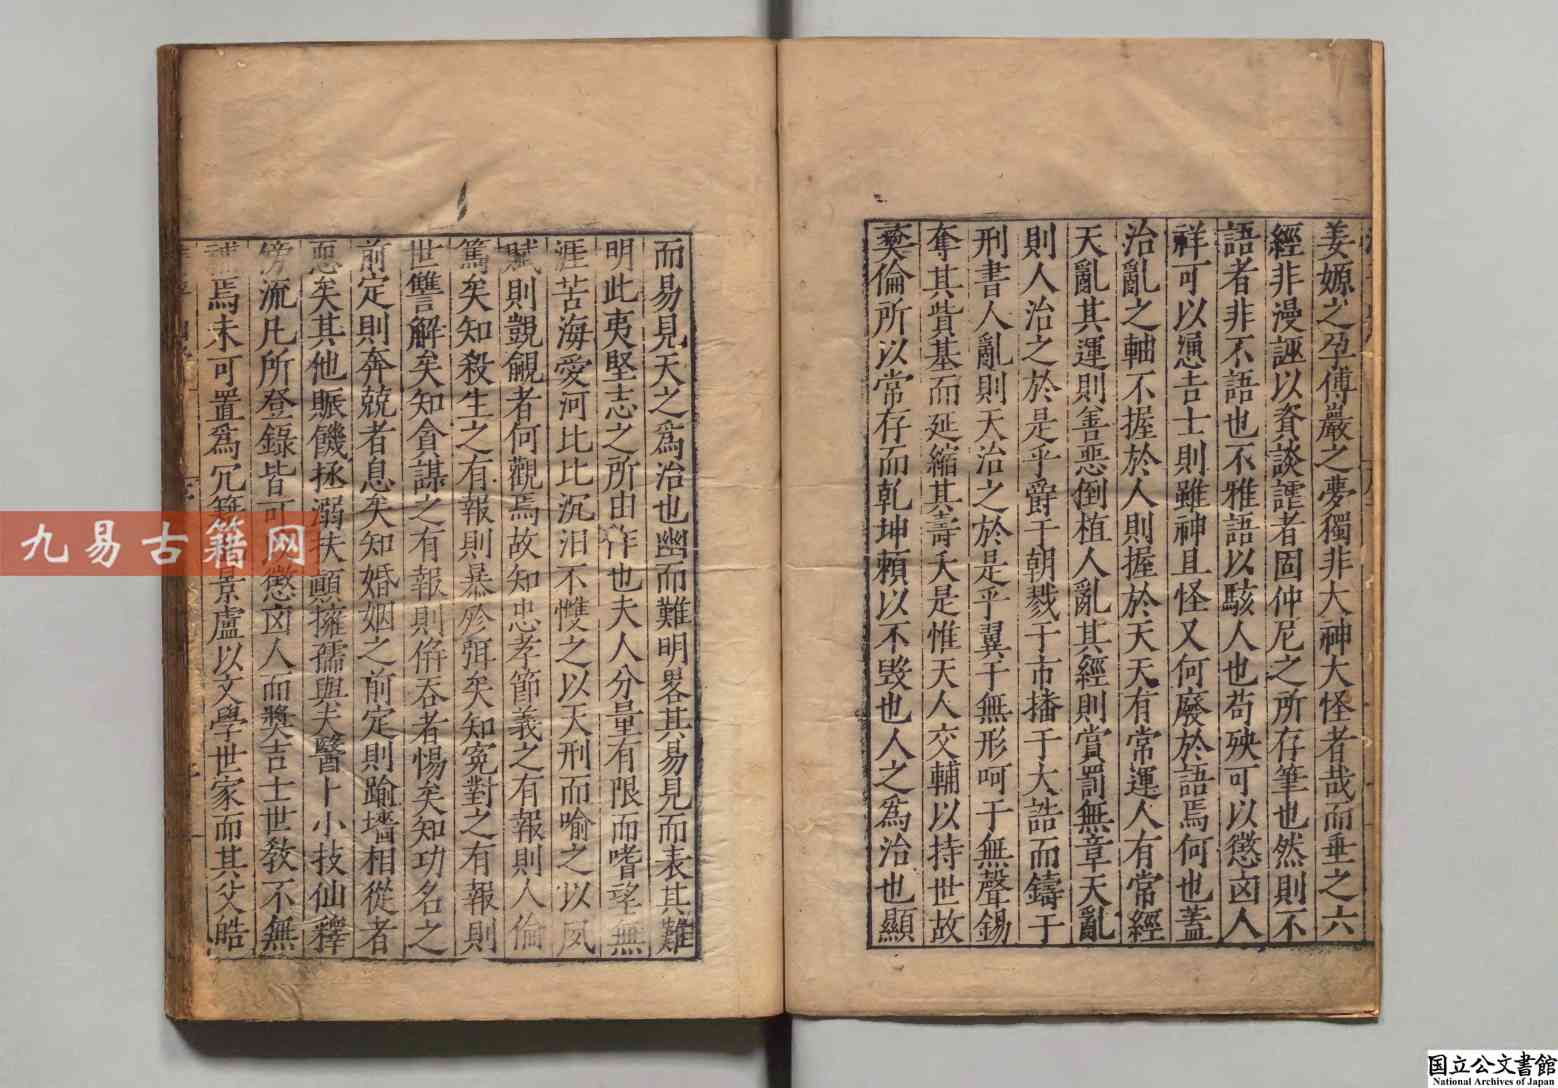 姜嫄之孕傅巖之夢獨非大神大怪者哉而垂之六
經非漫誣以資談謔者固仲尼之所存筆也然則不
語者非不語也不雅語以駭人也苟殃可以懲卤人
祥可以慂吉士則雖神且怪又何廢於語焉何也蓋
治亂之軸不握於人則握於天天有常運人有常經
天亂其運則善惡倒植人亂其經則賞罰無章天亂
則人治之於是乎爵于朝戮于市播于大誥而鑄于
刑書人亂則天治之於是乎翼于無形呵于無聲錫
奪其貲基而延縮其壽夭是惟天人交輔以持世故
彛倫所以常存而乾坤頼以不毁也人之為治也顯
而易見天之為治也幽而難明畧其易見而表其難
明此夷堅志之所由作也夫人分量有限而嗜望無
涯苦海愛河比比沉汨不戄之以天刑而喻之以夙
賦則覬覦者何觀焉故知忠孝節義之有報則人倫
篤矣知殺生之有報則暴殄弭矣知寃對之有報則
世讐解矣知貪謀之有報則倂吞者惕矣知功名之
前定則奔競者息矣知婚姻之前定則踰墻相從者
恧矣其他賑饑拯溺扶顚擁孺與夫醫卜小技仙釋
傍流凡所登錄皆可懲卤人而奬吉士世敎不無
焉未可置為冗景盧以文學世家而其父皓
九易古籍网
国立公文書館
National Archives of Japan